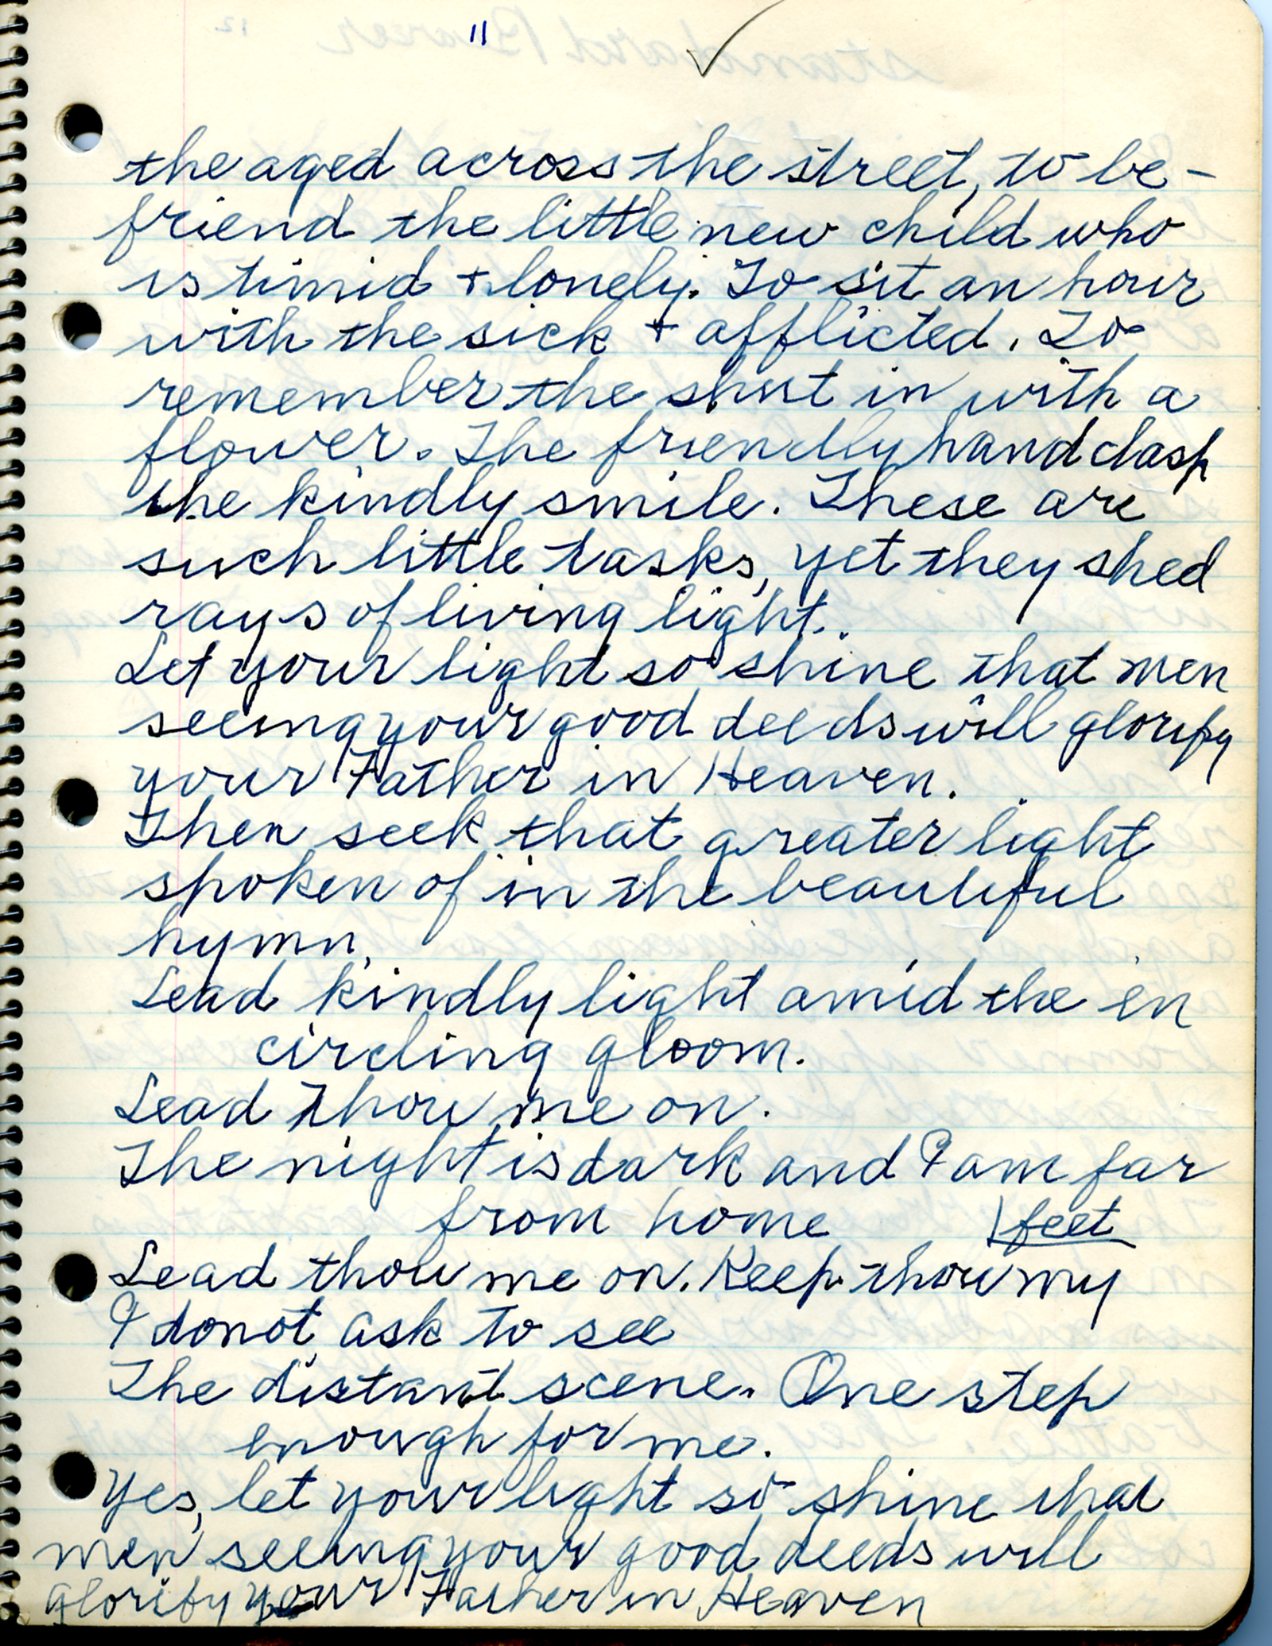 11
the aged across the street, to be-
friend the little new child who
is timid + lonely. To sit an hour
with the sick + afflicted. To
remember the shut in with a
flower. The friendly hand clasp
the kindly smile. These are
such little tasks, yet they shed
rays of living light.
Let your light so shine that men
seeing your good deeds will glorify
your Father in Heaven.
Then seek that greater light
spoken of in the beautiful
hymn,
Lead kindly light amid the en
circling gloom.
Lead Thou me on.
The night is dark and I am far
from home
feet
Lead thou me on. Keep thou my
I do not ask to see
The distant scene. One step
enough for me.
Yes, let your light so shine that
men seeing your good deeds will
glorify your Father in Heaven